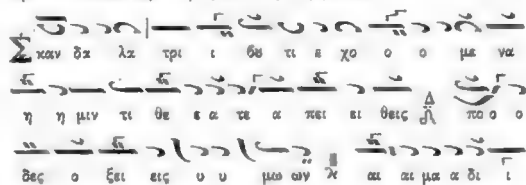 Σκαν δα λα τρι ι βυ τι ε χο ο ο με να
η η μιν τι θε ε α τε α πει ει θεις Δ πο ο ο
δες ο ξει εις υ υ μω ων αι αι μα α δι ι